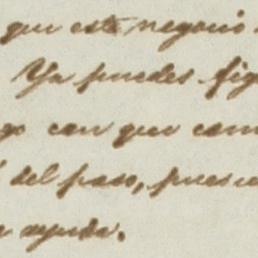 que este negocio
Ya puedes fig
go con que cam
del paso, pues
ayuda.